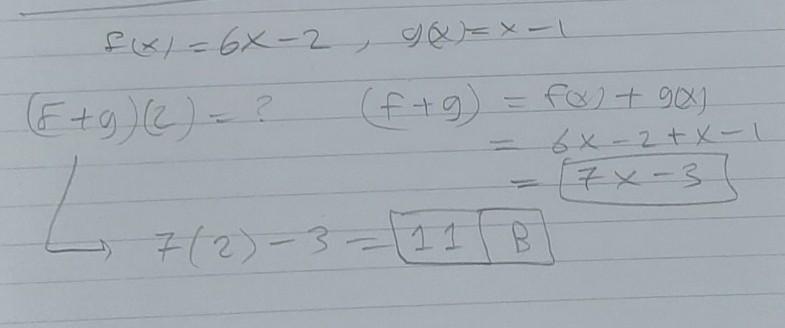 f(x) = 6x - 2 , g(x) = x - 1
(f+g)(2) = ? (f+g) = f(x) + g(x)
= 6x - 2 + x - 1
= 7x - 3
7(2) - 3 = 11 B